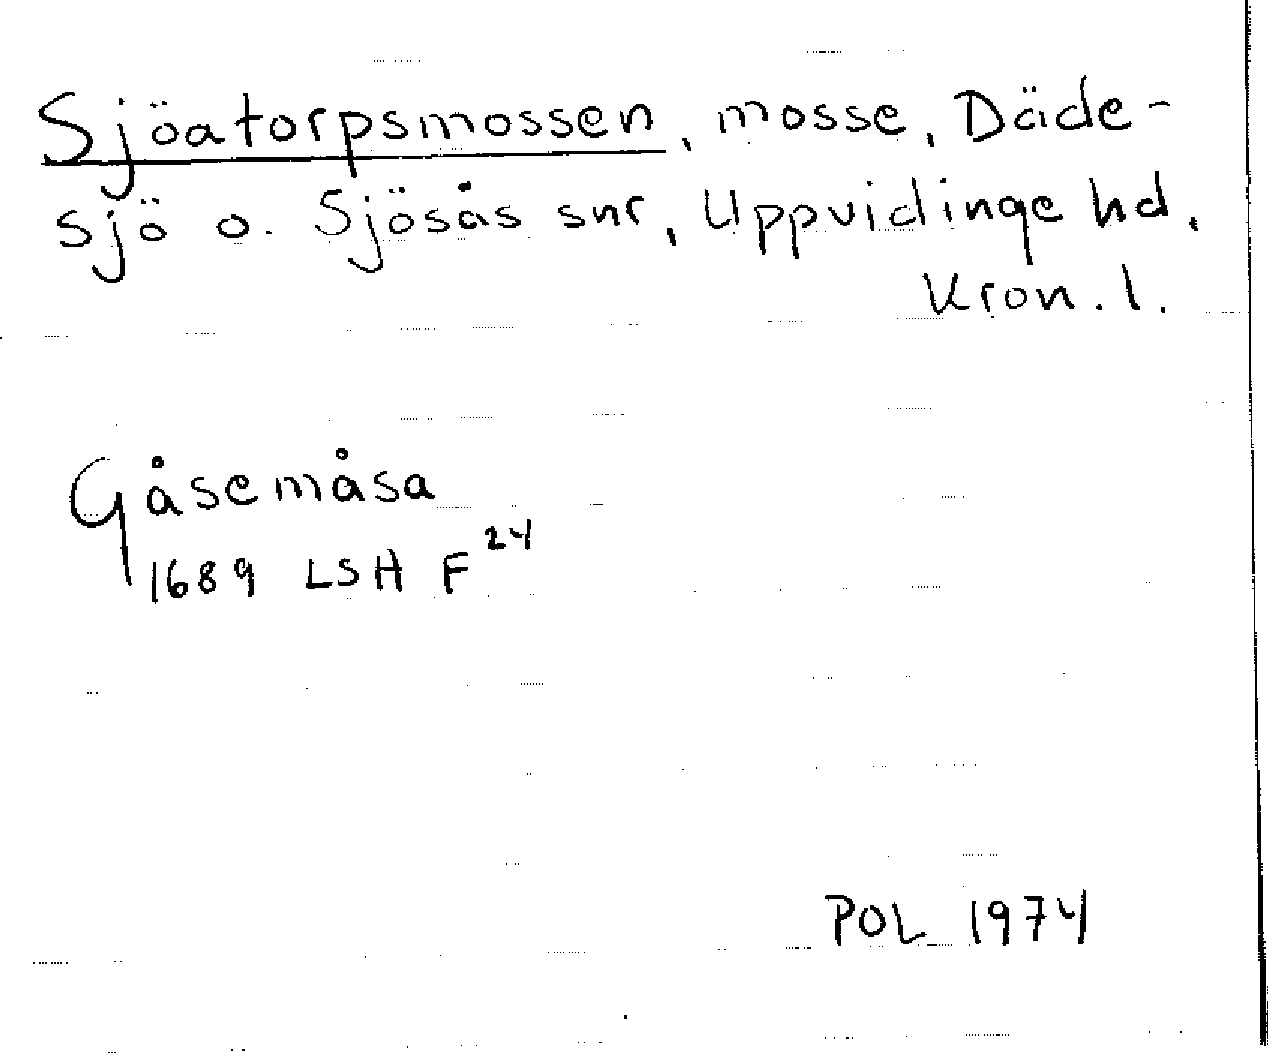 Sjöatorpsmossen, mosse, Däde-
sjö o. Sjösås snr, Uppvidinge hd.
Kron. l.
Gåsemåsa
1689 LSH F 24
POL 1974